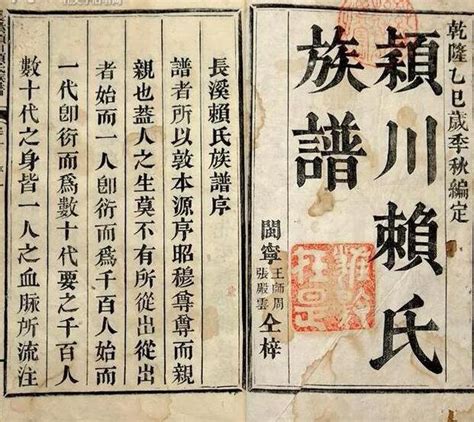 乾隆乙巳歲季秋編定
穎川賴氏
族譜
閩寧王師周張殿雲仝梓
長溪賴氏族譜序
譜者所以敦本源序昭穆尊尊而親
親也蓋人之生莫不有所從出從出
者始而一人卽衍而為千百人始而
一代卽衍而爲數十代要之千百人
數十代之身皆一人之血脈所流注